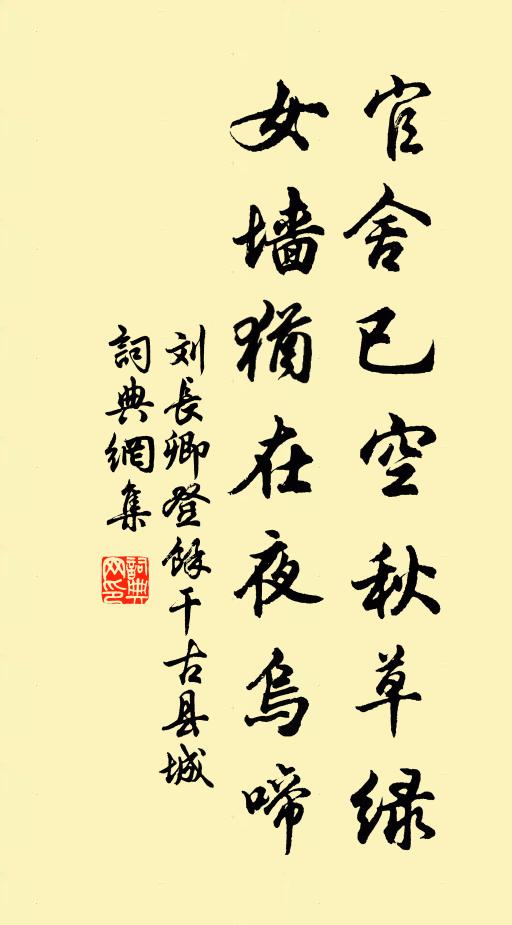 官舍已空秋草绿
女墙犹在夜乌啼
刘長卿登餘干古县城
詞典網集
詞典网印